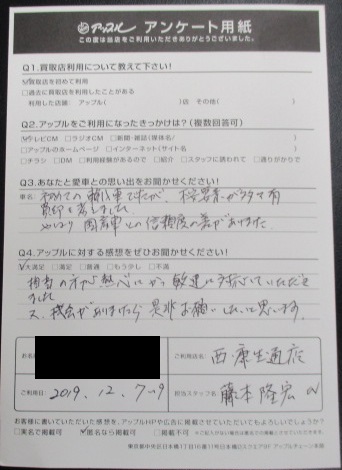 アップル アンケート用紙
この度は当店をご利用いただきありがとうございました。
Q1.買取店利用について教えて下さい!
☑買取店を初めて利用
□過去に買取店を利用したことがある
利用した店舗: アップル( )店 その他( )
Q2.アップルをご利用になったきっかけは?(複数回答可)
☑テレビCM □ラジオCM □新聞・雑誌(媒体名/ )
□アップルのホームページ □インターネット(サイト名 )
□チラシ □DM □利用経験があるので □紹介 □スタッフに誘われて □通りがかりで
Q3.あなたと愛車との思い出をお聞かせください!
車名: 初めての 車でしたが、
国産車との信頼度の差がありました。
Q4.アップルに対する感想をぜひお聞かせください!
☑大満足 □満足 □普通 □もう少し □不満
担当の方が熱心にかつ敏速に対応していただき
ました
又、機会がありましたら是非お願いしたいと思います。
お名
ご利用店名: 西・康生通店
ご利用日: 2019.12.7~9
担当スタッフ名 藤本隆宏
お客様に書いていただいた感想を、アップルHPや広告に掲載させていただいてもよろしいでしょうか?
□実名で掲載可 ☑匿名なら掲載可 □掲載不可